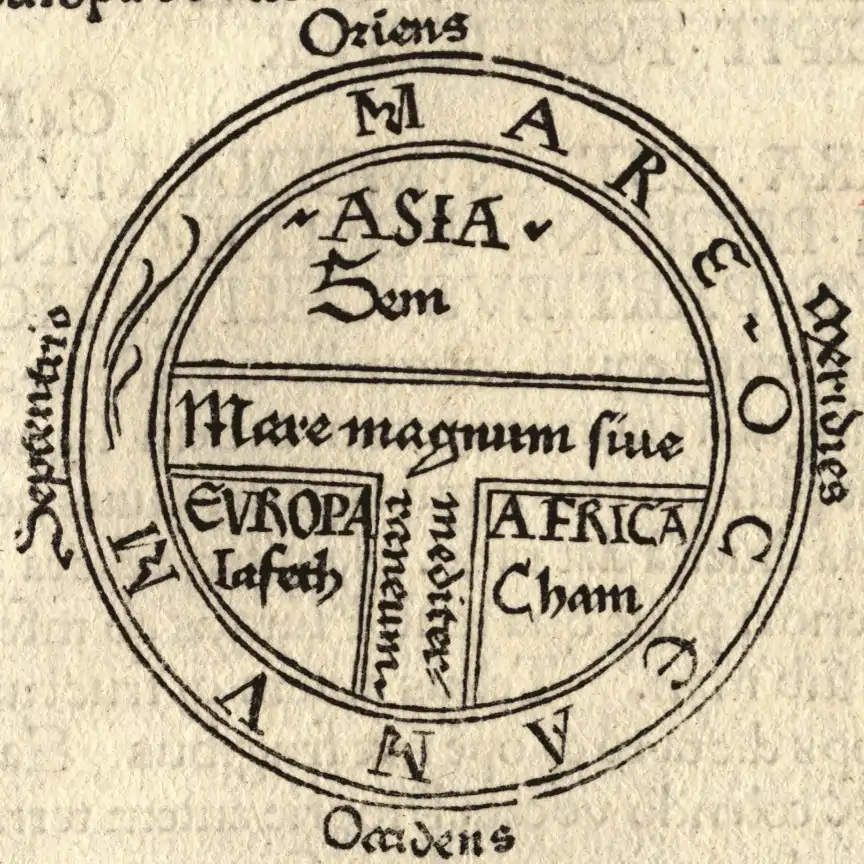 Oriens
MARE ~ OCEANVM
~ ASIA ~
Sem
Septentrio
Meridies
Mare magnum siue
mediter/
raneum
EVROPA
Iafeth
AFRICA
Cham
Occidens